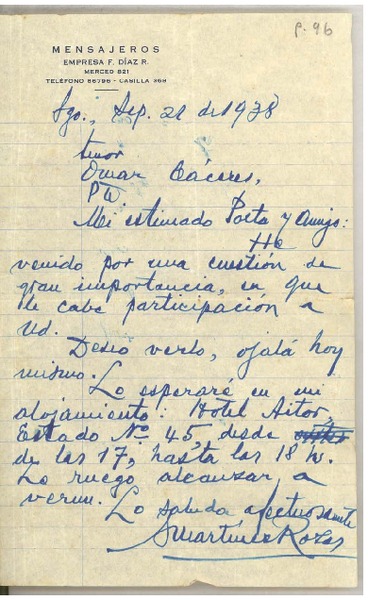 p. 96
MENSAJEROS
EMPRESA F. DÍAZ R.
MERCED 821
TELÉFONO 86796 - CASILLA 369
Sgo., Sep. 21 de 1938
Señor
Omar Cáceres,
Pte.
Mi estimado Poeta y Amigo:
He
venido por una cuestión de
gran importancia, en que
le cabe participación a
Ud.
Deseo verlo, ojalá hoy
mismo.
Lo esperaré en mi
alojamiento: Hotel Aitor,
Estado No. 45, desde
de las 17, hasta las 18 h.
Le ruego alcanzar a
verme.
Lo saluda afectuosamente
Martínez Rozas